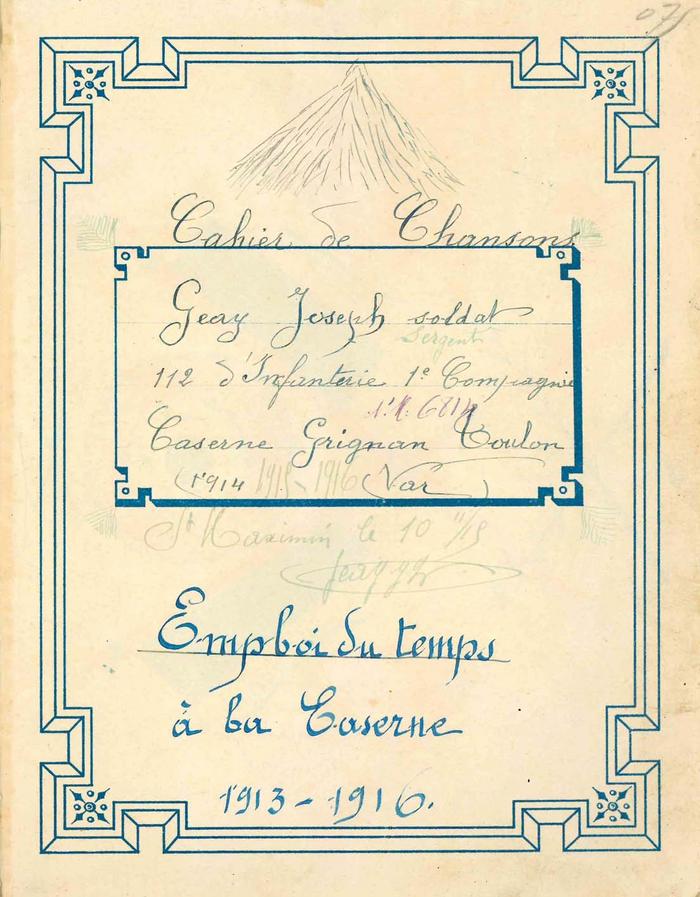 075
Cahier de Chansons
Geay Joseph soldat
Sergent
112 d'Infanterie 1e Compagnie
Caserne Grignan Toulon
(1914 1915-1916 (Var)
St Maximin le 10 11/15
Emploi du temps
à la Caserne
1913-1916.